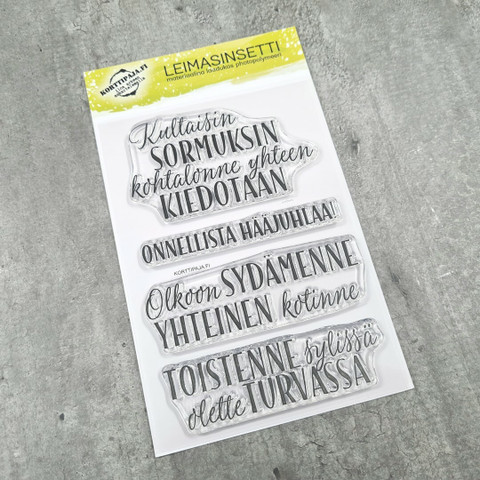 KORTTIPAJA.FI
LEIMASINSETTI
materiaalina laadukas photopolymeeri
Kultaisin
SORMUKSIN
kohtalonne yhteen
KIEDOTAAN
ONNELLISTA HÄÄJUHLAA!
KORTTIPAJA.FI
Olkoon SYDÄMENNE
YHTEINEN kotinne
TOISTENNE sylissä
olette TURVASSA